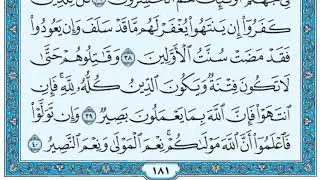 فِى جَهَنَّمَ أُو۟لَٰٓئِكَ هُمُ ٱلْخَٰسِرُونَ ۝٣٧ قُل لِّلَّذِينَ
كَفَرُوٓا۟ إِن يَنتَهُوا۟ يُغْفَرْ لَهُم مَّا قَدْ سَلَفَ وَإِن يَعُودُوا۟
فَقَدْ مَضَتْ سُنَّتُ ٱلْأَوَّلِينَ ۝٣٨ وَقَٰتِلُوهُمْ حَتَّىٰ
لَا تَكُونَ فِتْنَةٌ وَيَكُونَ ٱلدِّينُ كُلُّهُۥ لِلَّهِ فَإِنِ
ٱنتَهَوْا۟ فَإِنَّ ٱللَّهَ بِمَا يَعْمَلُونَ بَصِيرٌ ۝٣٩ وَإِن تَوَلَّوْا۟
فَٱعْلَمُوٓا۟ أَنَّ ٱللَّهَ مَوْلَىٰكُمْ نِعْمَ ٱلْمَوْلَىٰ وَنِعْمَ ٱلنَّصِيرُ ۝٤٠
١٨١